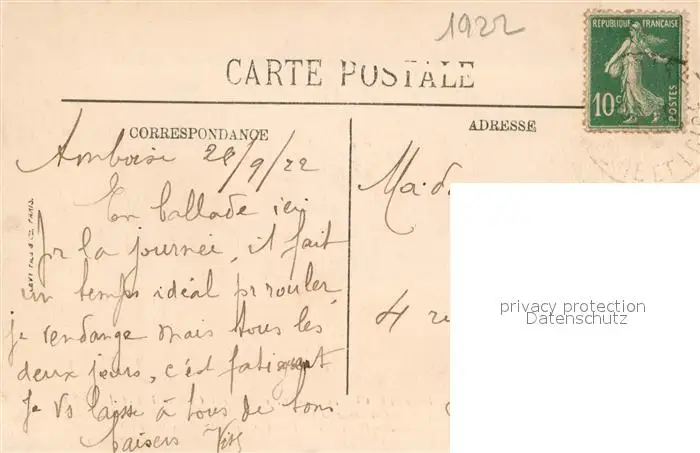 1922
RÉPUBLIQUE FRANÇAISE
10c
POSTES
CARTE POSTALE
CORRESPONDANCE
ADRESSE
Amboise 28/9/22
En ballade ici
pr la journée, il fait
un temps idéal pr rouler,
je vendange mais tous les
deux jours, c'est fatigant
Je vs laisse à tous de bons
baisers
Mad
4 ru
privacy protection
Datenschutz